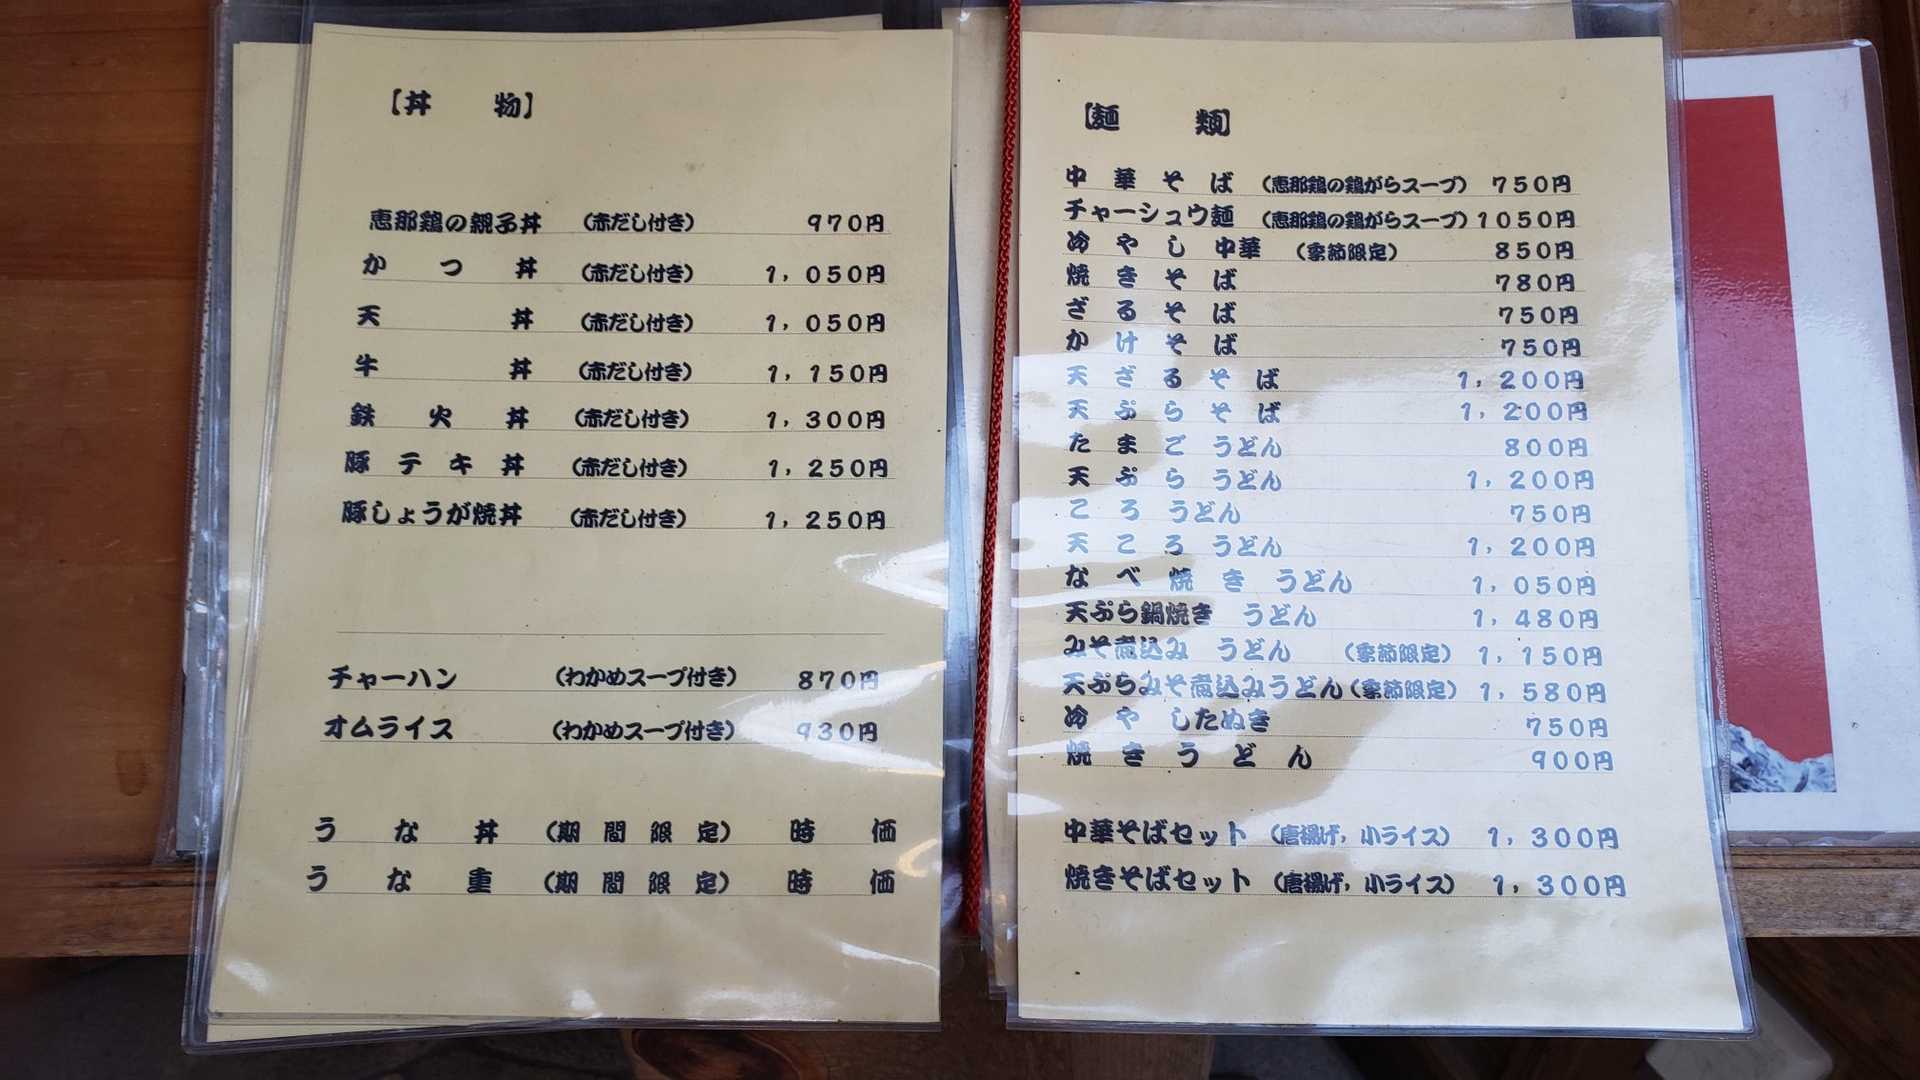 【丼 物】
恵那鶏の親子丼 （赤だし付き） 970円
かつ丼 （赤だし付き） 1,050円
天丼 （赤だし付き） 1,050円
牛丼 （赤だし付き） 1,150円
鉄火丼 （赤だし付き） 1,300円
豚テキ丼 （赤だし付き） 1,250円
豚しょうが焼丼 （赤だし付き） 1,250円
チャーハン （わかめスープ付き） 870円
オムライス （わかめスープ付き） 930円
うな丼 （期間限定） 時価
うな重 （期間限定） 時価
【麺 類】
中華そば （恵那鶏の鶏がらスープ） 750円
チャーシュウ麺 （恵那鶏の鶏がらスープ） 1050円
冷やし中華 （季節限定） 850円
焼きそば 780円
ざるそば 750円
かけそば 750円
天ざるそば 1,200円
天ぷらそば 1,200円
たまごうどん 800円
天ぷらうどん 1,200円
ころうどん 750円
天ころうどん 1,200円
なべ焼きうどん 1,050円
天ぷら鍋焼きうどん 1,480円
みそ煮込みうどん （季節限定） 1,150円
天ぷらみそ煮込みうどん（季節限定） 1,580円
冷やしたぬき 750円
焼きうどん 900円
中華そばセット （唐揚げ，小ライス） 1,300円
焼きそばセット （唐揚げ，小ライス） 1,300円